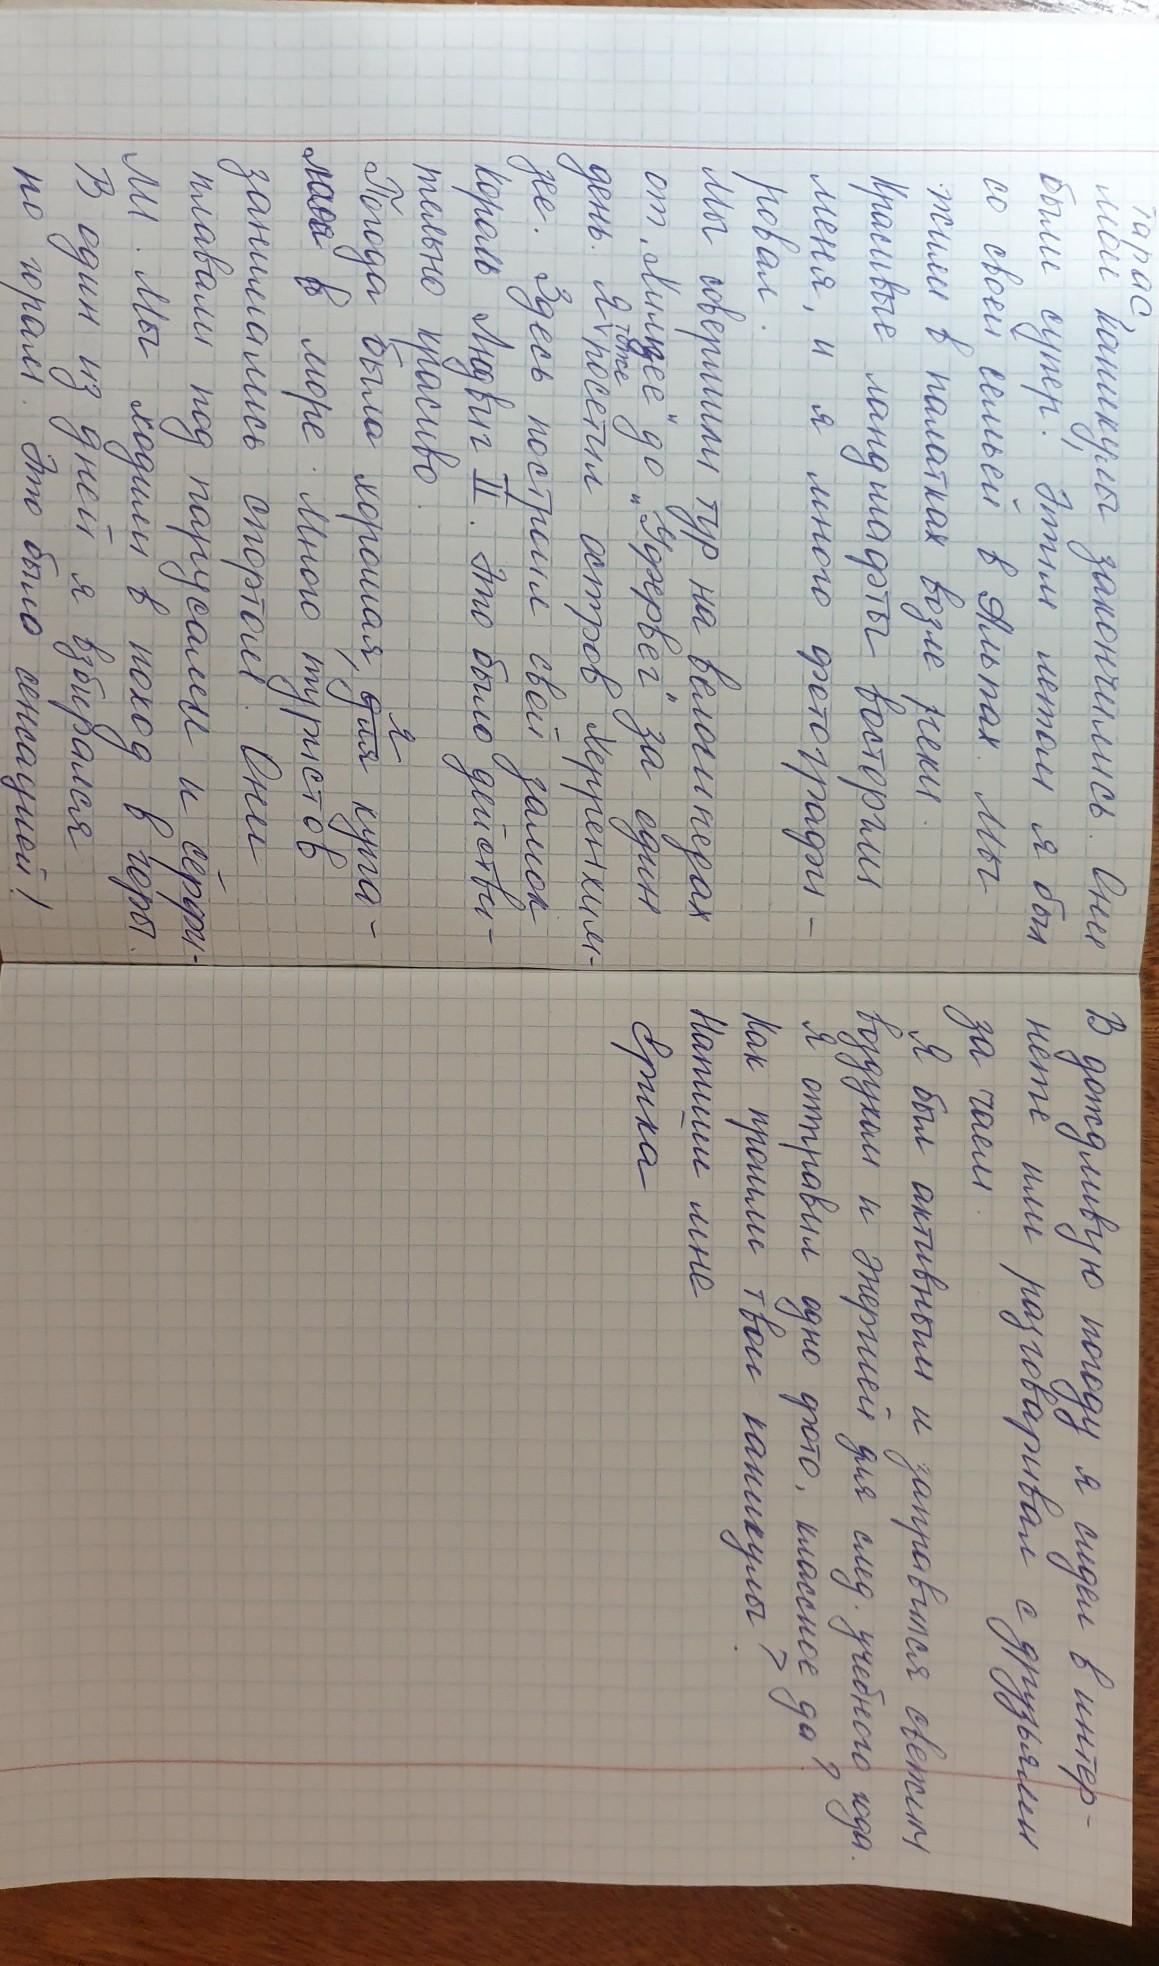 Тарас
мои каникулы закончились. Они
были супер. Этим летом я был
со своей семьей в Альпах. Мы
жили в палатках возле реки.
Красивые ландшафты восторгли
меня, и я много фотографи-
ровал.
Мы совершили тур на велосипедах
от „ " до „ " за един
день. Я тоже посетил остров Херренким-
зее. Здесь построил свой замок
Король Людвиг II. Это было действи-
тельно красиво.
Погода была хорошая, я купа-
лась в море. Много туристов
занимались спортом. Они
плавали под парусами и серфи-
ли. Мы ходили в поход в горы.
В один из дней я взбирался
по горам. Это было сенсацией!
В дождливую погоду я сидел в интер-
нете или разговаривал с друзьями
за чаем.
Я был активным и заправился свежим
воздухом и энергией для след. учебного года.
Я отправил одно фото, классное да?
Как прошли твои каникулы?
Напиши мне
Эрика